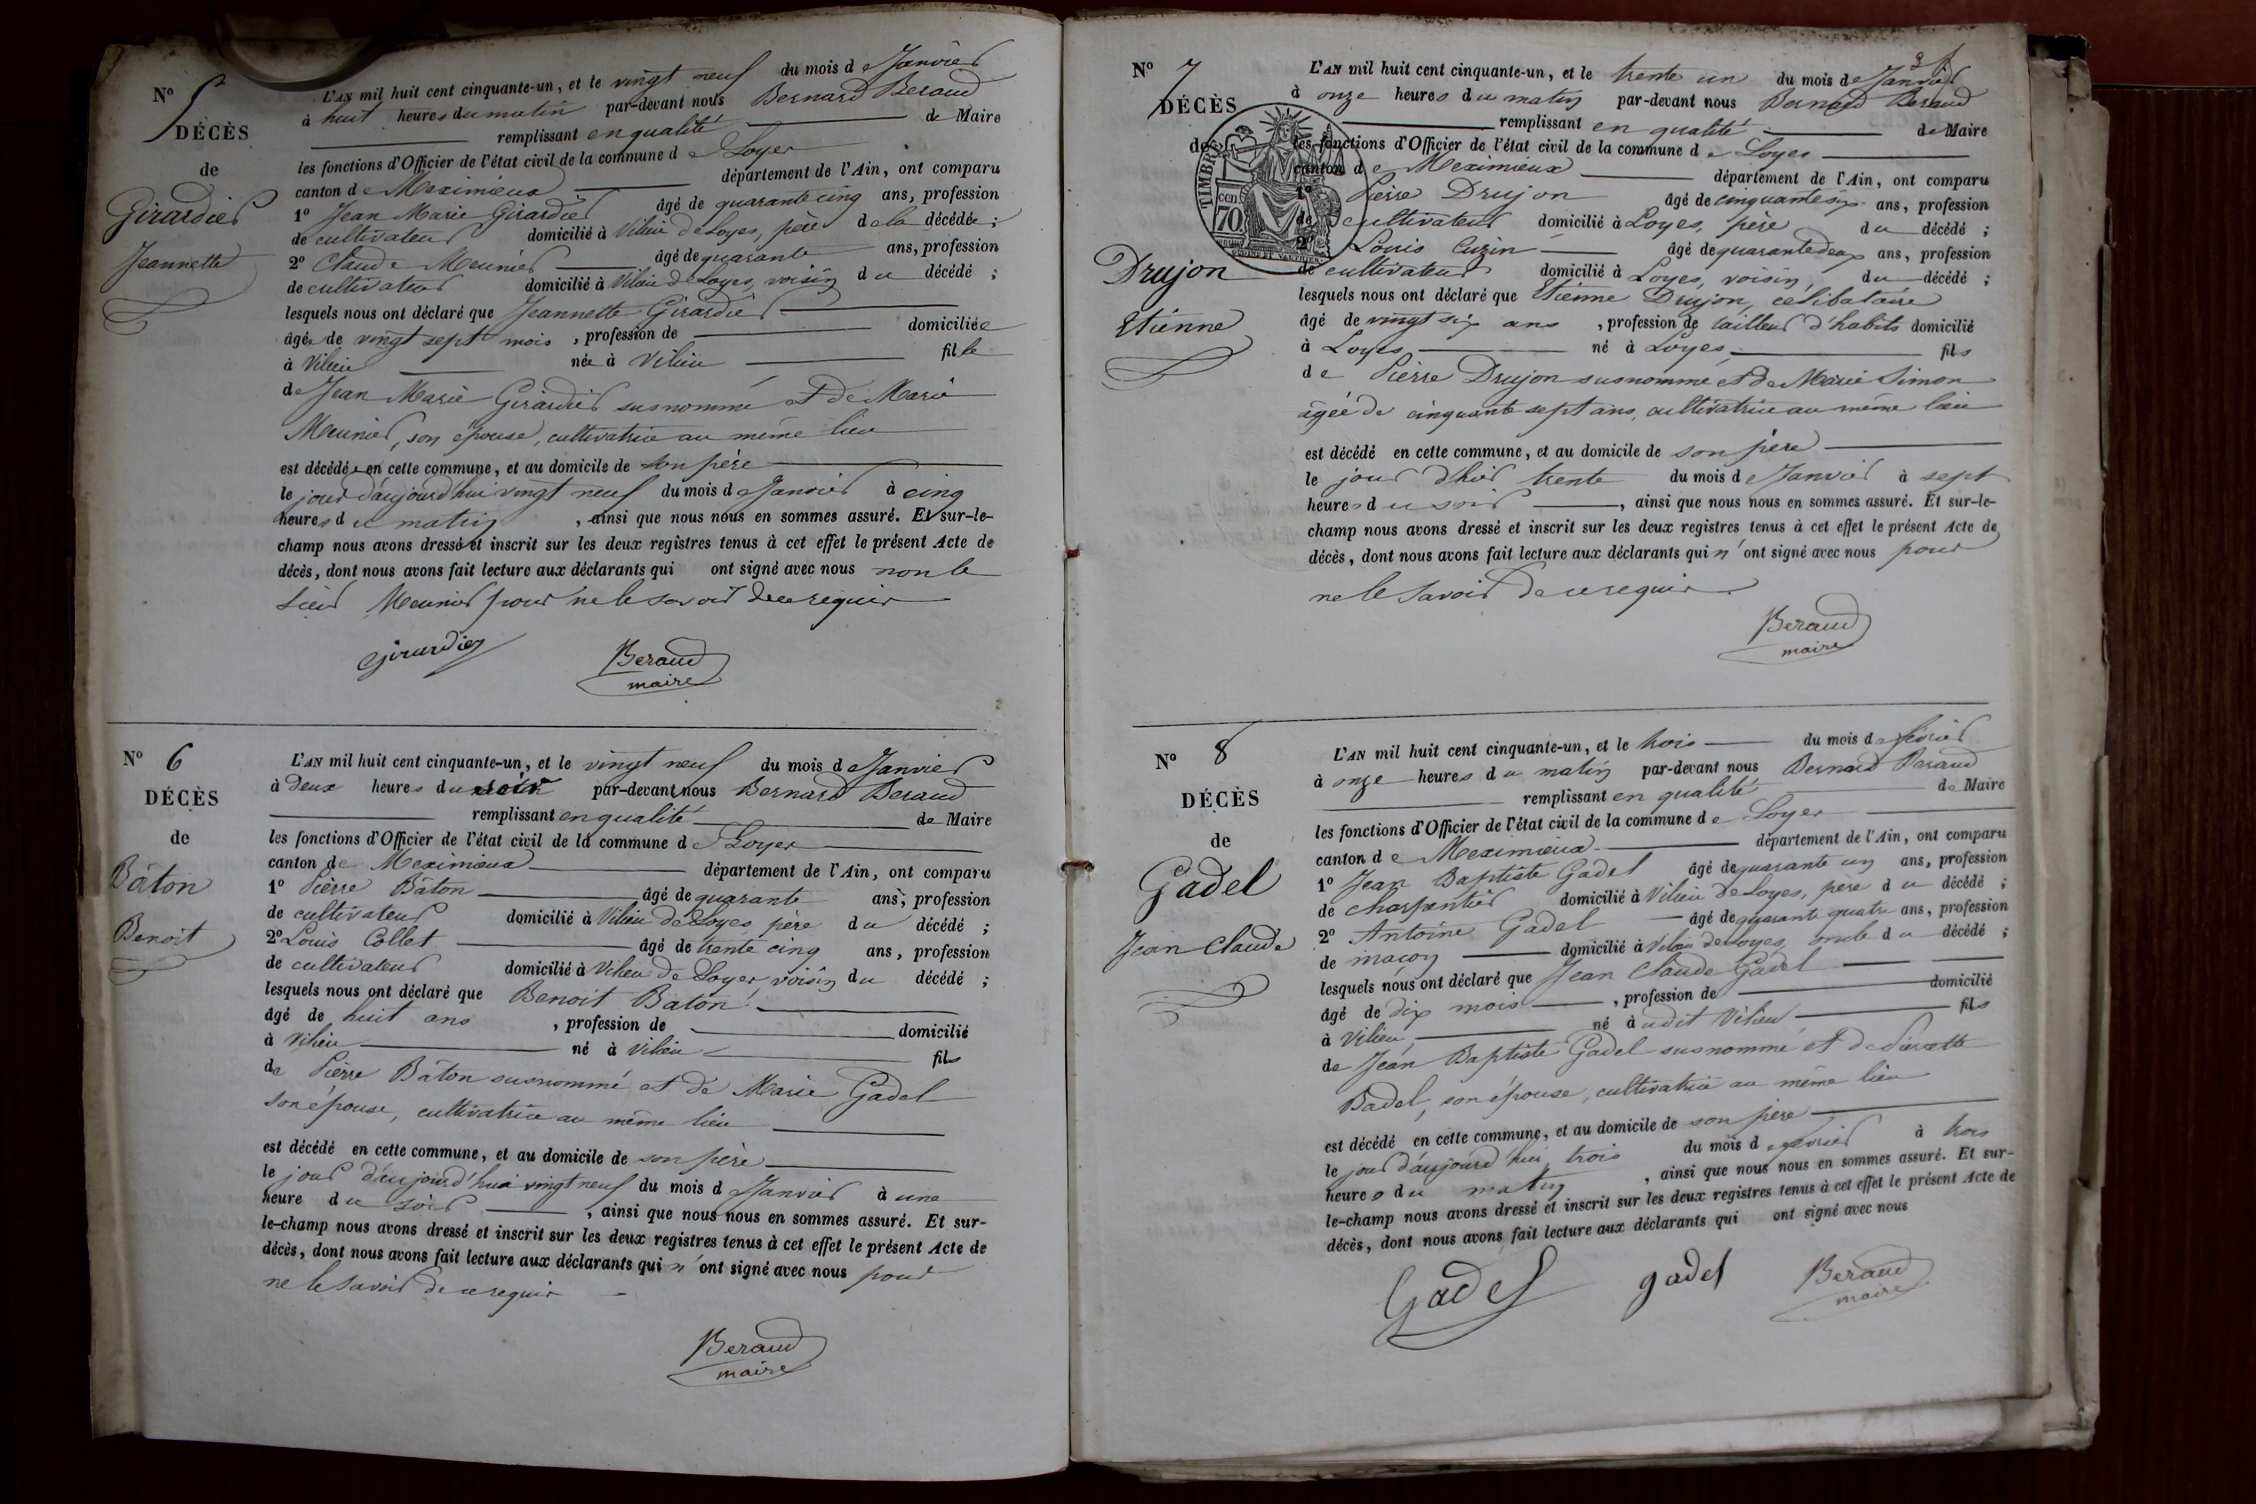 Nº 5
DÉCÈS
de
Girardier
Jeannette
L'AN mil huit cent cinquante-un, et le vingt neuf du mois de Janvier
à huit heures du matin par-devant nous Bernard Beraud
remplissant en qualité de Maire
les fonctions d'Officier de l'état civil de la commune de Loyes
canton de Meximieux département de l'Ain, ont comparu
1º Jean Marie Girardier âgé de quarante cinq ans, profession
de cultivateur domicilié à Vilieu de Loyes, père de la décédée ;
2º Claude Meunier âgé de quarante ans, profession
de cultivateur domicilié à Vilieu de Loyes, voisin du décédé ;
lesquels nous ont déclaré que Jeannette Girardier
âgée de vingt sept mois, profession de domiciliée
à Vilieu née à Vilieu fille
de Jean Marie Girardier susnommé et de Marie
Meunier, son épouse, cultivatrice au même lieu
est décédée en cette commune, et au domicile de son père
le jour d'aujourd'hui vingt neuf du mois de Janvier à cinq
heures du matin, ainsi que nous nous en sommes assuré. Et sur-le-
champ nous avons dressé et inscrit sur les deux registres tenus à cet effet le présent Acte de
décès, dont nous avons fait lecture aux déclarants qui ont signé avec nous non le
Sieur Meunier pour ne le savoir de ce requis
Girardier
Beraud
maire
Nº 6
DÉCÈS
de
Bâton
Benoit
L'AN mil huit cent cinquante-un, et le vingt neuf du mois de Janvier
à deux heures du soir par-devant nous Bernard Beraud
remplissant en qualité de Maire
les fonctions d'Officier de l'état civil de la commune de Loyes
canton de Meximieux département de l'Ain, ont comparu
1º Pierre Bâton âgé de quarante ans, profession
de cultivateur domicilié à Vilieu de Loyes, père du décédé ;
2º Louis Collet âgé de trente cinq ans, profession
de cultivateur domicilié à Vilieu de Loyes, voisin du décédé ;
lesquels nous ont déclaré que Benoit Baton
âgé de huit ans, profession de domicilié
à Vilieu né à Vilieu fils
de Pierre Bâton susnommé et de Marie Gadel
son épouse, cultivatrice au même lieu
est décédé en cette commune, et au domicile de son père
le jour d'aujourd'hui vingt neuf du mois de Janvier à une
heure du soir, ainsi que nous nous en sommes assuré. Et sur-
le-champ nous avons dressé et inscrit sur les deux registres tenus à cet effet le présent Acte de
décès, dont nous avons fait lecture aux déclarants qui n'ont signé avec nous pour
ne le savoir de ce requis
Beraud
maire
Nº 7
DÉCÈS
de
Drujon
Etienne
TIMBRE
70 cen.
L'AN mil huit cent cinquante-un, et le trente un du mois de Janvier
à onze heures du matin par-devant nous Bernard Beraud
remplissant en qualité de Maire
les fonctions d'Officier de l'état civil de la commune de Loyes
canton de Meximieux département de l'Ain, ont comparu
1º Pierre Drujon âgé de cinquante six ans, profession
de cultivateur domicilié à Loyes, père du décédé ;
2º Louis Cuzin âgé de quarante deux ans, profession
de cultivateur domicilié à Loyes, voisin, du décédé ;
lesquels nous ont déclaré que Etienne Drujon, célibataire
âgé de vingt six ans, profession de tailleur d'habits domicilié
à Loyes né à Loyes, fils
de Pierre Drujon susnommé et de Marie Simon
âgée de cinquante sept ans, cultivatrice au même lieu
est décédé en cette commune, et au domicile de son père
le jour d'hier trente du mois de Janvier à sept
heures du soir, ainsi que nous nous en sommes assuré. Et sur-le-
champ nous avons dressé et inscrit sur les deux registres tenus à cet effet le présent Acte de
décès, dont nous avons fait lecture aux déclarants qui n'ont signé avec nous pour
ne le savoir de ce requis.
Beraud
maire
Nº 8
DÉCÈS
de
Gadel
Jean Claude
L'AN mil huit cent cinquante-un, et le trois du mois de février
à onze heures du matin par-devant nous Bernard Beraud
remplissant en qualité de Maire
les fonctions d'Officier de l'état civil de la commune de Loyes
canton de Meximieux département de l'Ain, ont comparu
1º Jean Baptiste Gadel âgé de quarante un ans, profession
de charpentier domicilié à Vilieu de Loyes, père du décédé ;
2º Antoine Gadel âgé de quarante quatre ans, profession
de maçon domicilié à Vilieu de Loyes, oncle du décédé ;
lesquels nous ont déclaré que Jean Claude Gadel
âgé de dix mois, profession de domicilié
à Vilieu, né à udit Vilieu fils
de Jean Baptiste Gadel susnommé et de Pierrette
Badel, son épouse, cultivatrice au même lieu
est décédé en cette commune, et au domicile de son père
le jour d'aujourd'hui trois du mois de février à trois
heures du matin, ainsi que nous nous en sommes assuré. Et sur-
le-champ nous avons dressé et inscrit sur les deux registres tenus à cet effet le présent Acte de
décès, dont nous avons fait lecture aux déclarants qui ont signé avec nous
Gadel gadel Beraud
maire